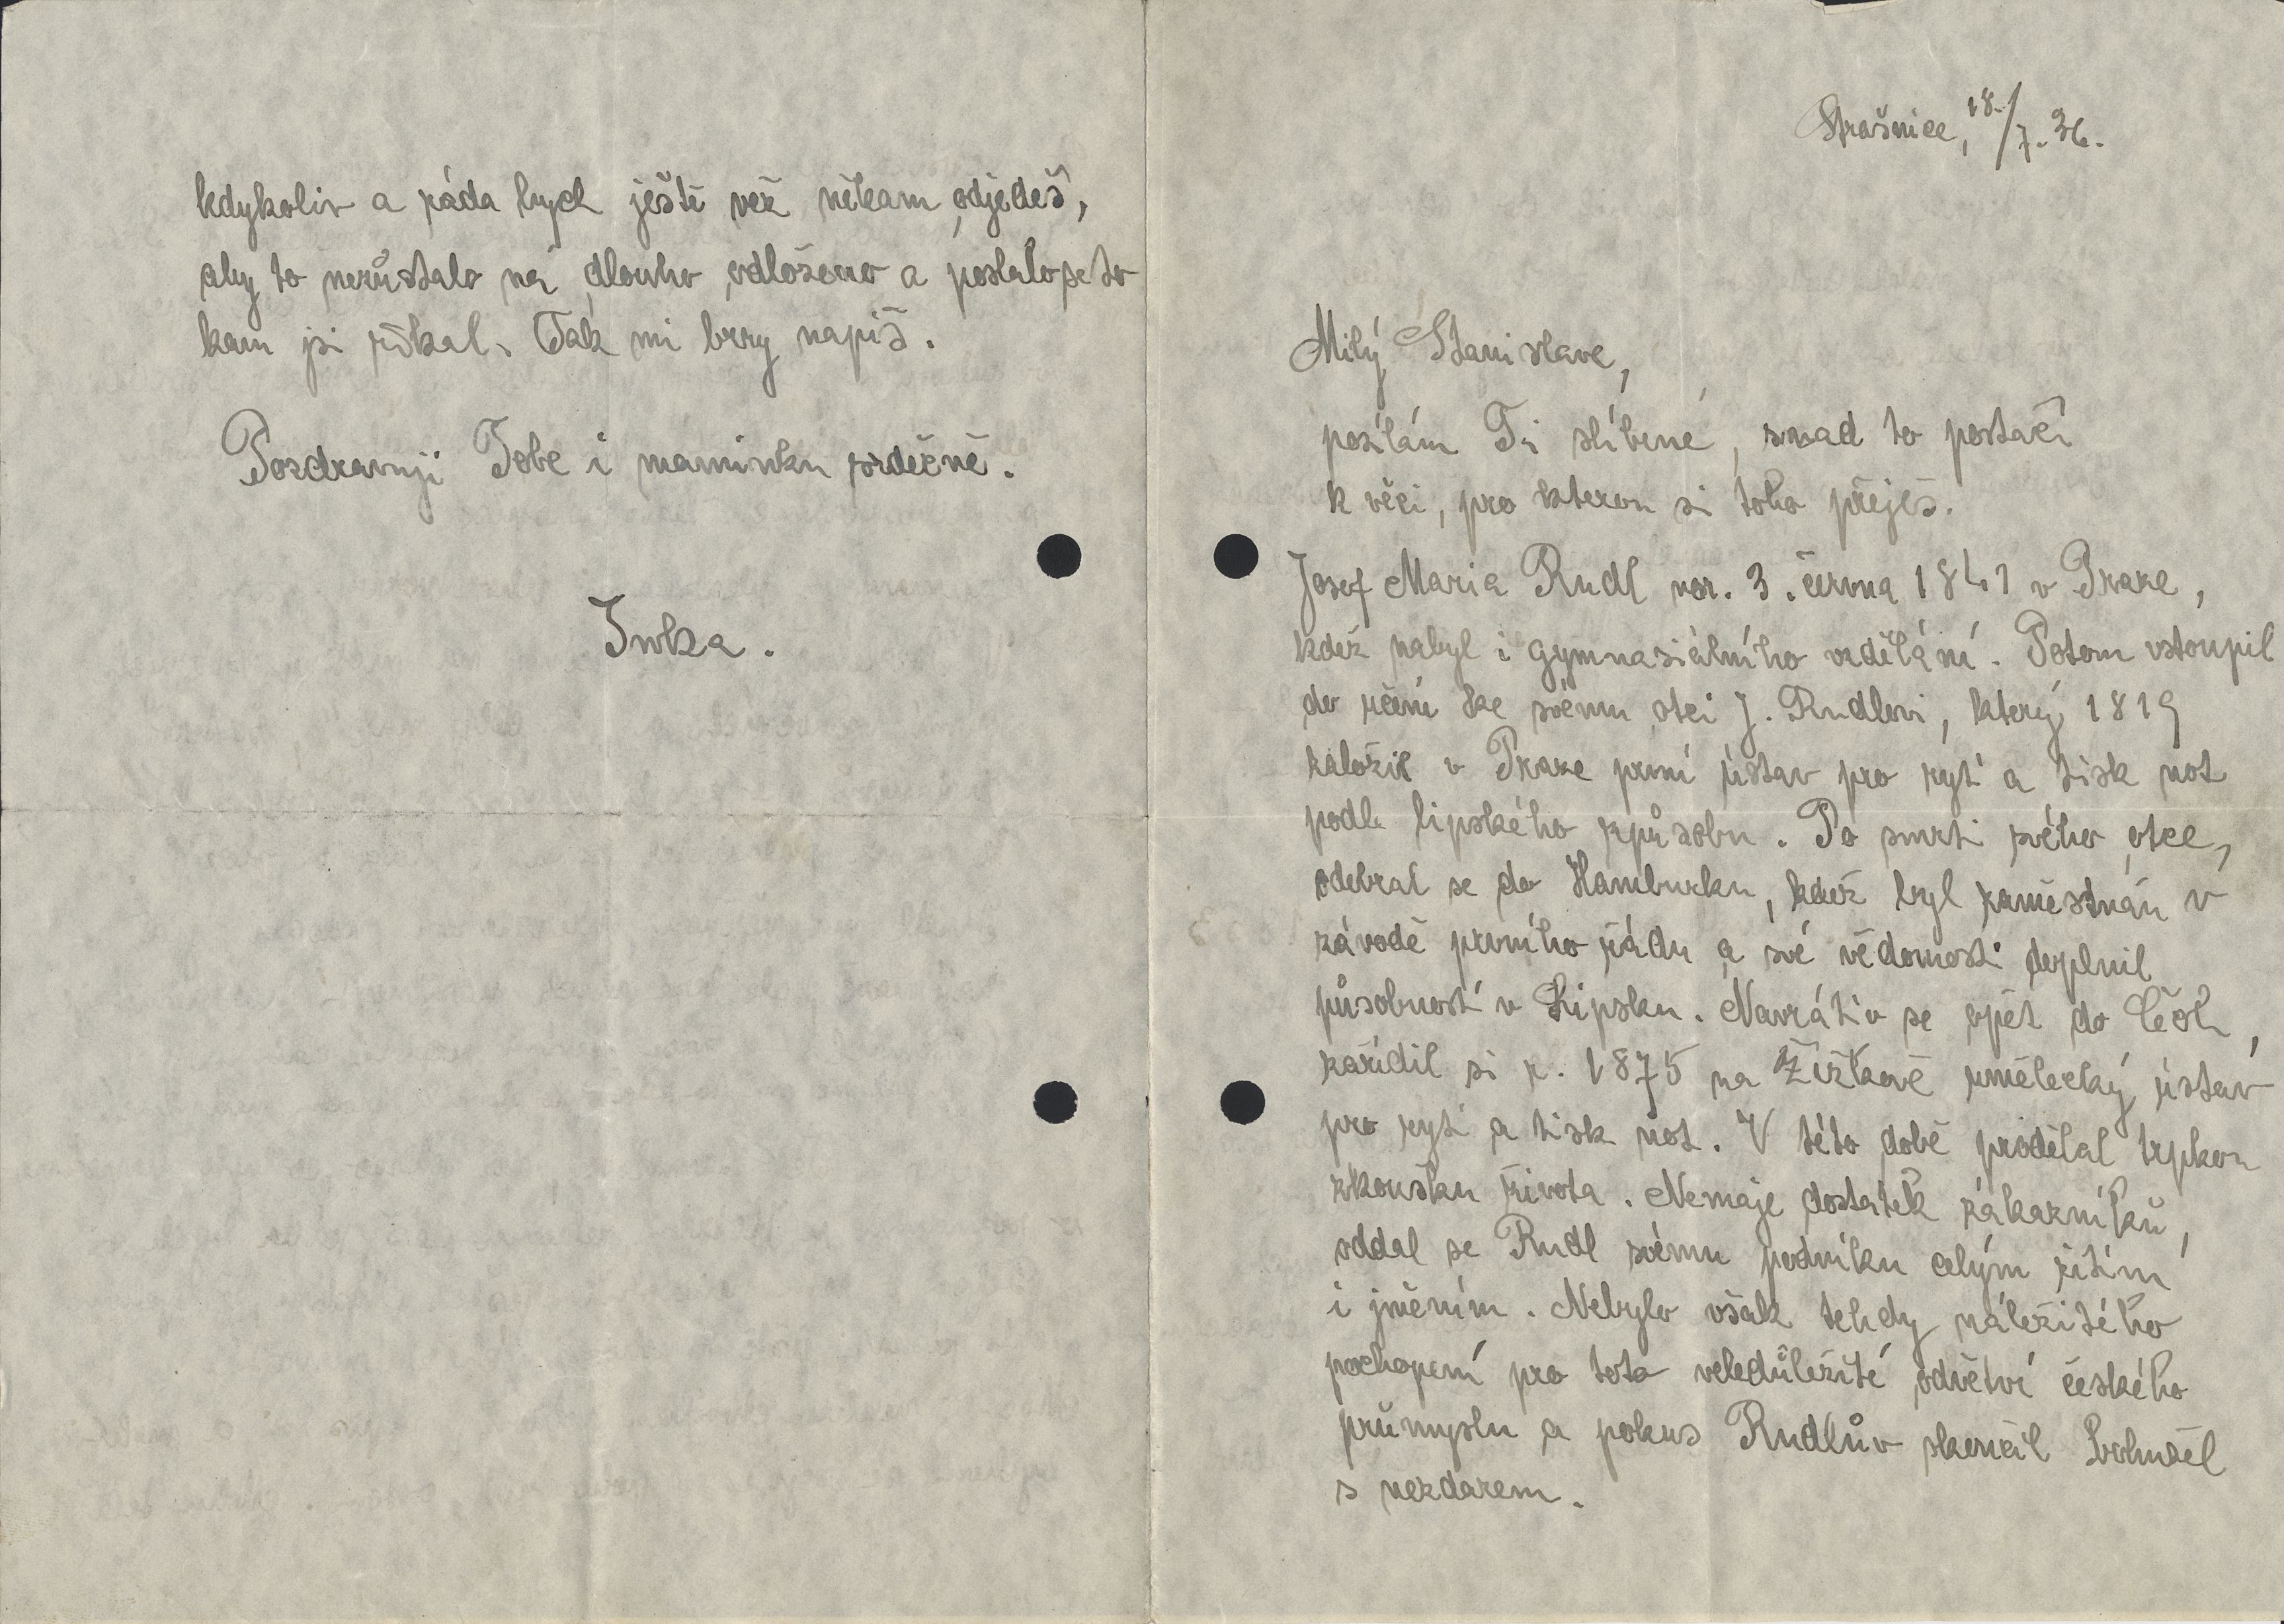 kdykoliv a ráda bych ještě než někam odjedeš,
aby to nezůstalo na dlouho odloženo a poslalo se to
kam jsi říkal. Tak mi brzy napiš.
Pozdravuji Tobe i maminku srdečně.
Inka.
Strašnice, 18./7. 36.
Milý Stanislave,
posílám Ti slíbené, snad to postačí
k věci, pro kterou si toho přeješ.
Josef Maria Rudl nar. 3. června 1841 v Praze,
kdež nabyl i gymnasiálního vzdělání. Potom vstoupil
do učení ke svému otci J. Rudlovi, který 1819
založil v Praze první ústav pro rytí a tisk not
podle lipského způsobu. Po smrti svého otce,
odebral se do Hamburku, kdež byl zaměstnán v
závodě prvního řádu a své vědomosti doplnil
působností v Lipsku. Navrátiv se opět do Čech,
zařídil si r. 1875 na Žižkově umělecký ústav
pro rytí a tisk not. V této době prodělal trpkou
zkoušku života. Nemaje dostatek zákazníků,
oddal se Rudl svému podniku celým žitím
i jměním. Nebylo však tehdy náležitého
pochopení pro toto veledůležité odvětví českého
průmyslu a pokus Rudlův skončil bohužel
s nezdarem.